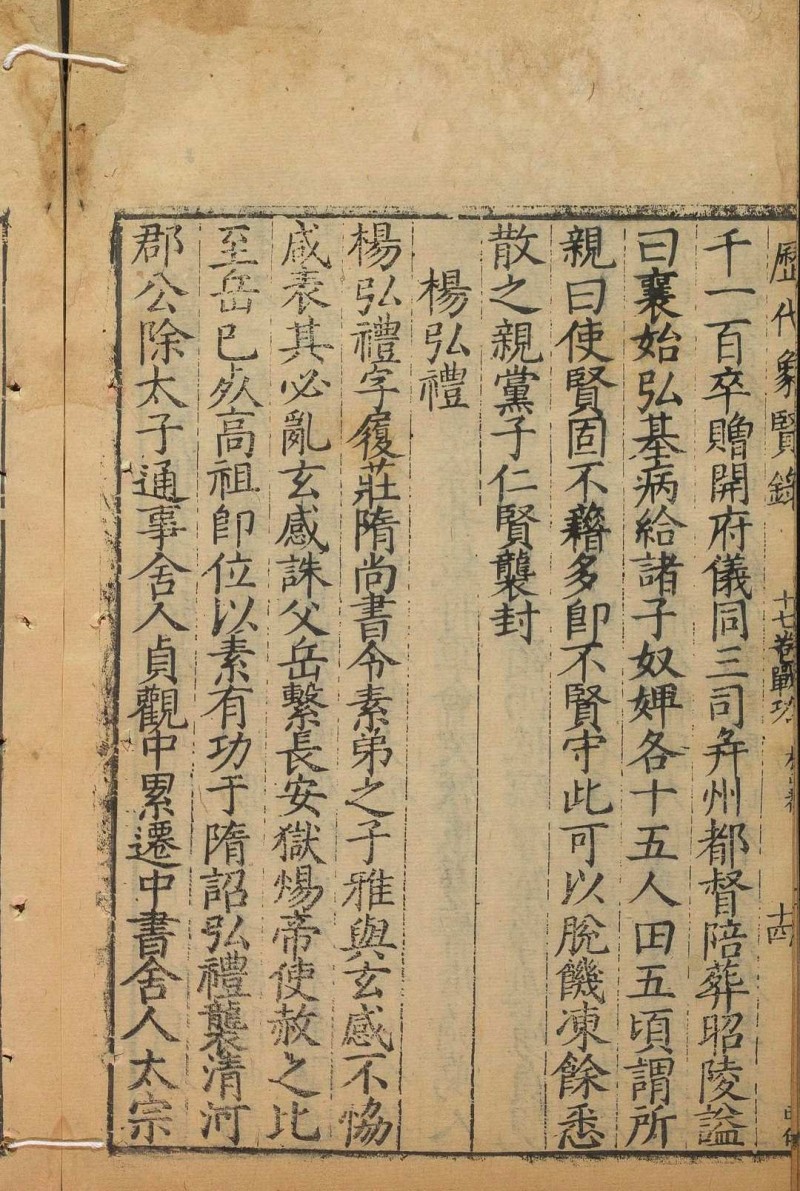 歷代象賢錄 十七卷戰功
千一百卒贈開府儀同三司并州都督陪葬昭陵謚
曰襄始弘基病給諸子奴婢各十五人田五頃謂所
親曰使賢固不藉多即不賢守此可以脫饑凍餘悉
散之親黨子仁賢襲封
楊弘禮
楊弘禮字履莊隋尚書令素弟之子雅與玄感不恊
咸表其必亂玄感誅父岳繫長安獄煬帝使赦之比
至岳已死高祖即位以素有功于隋詔弘禮襲清河
郡公除太子通事舍人貞觀中累遷中書舍人太宗